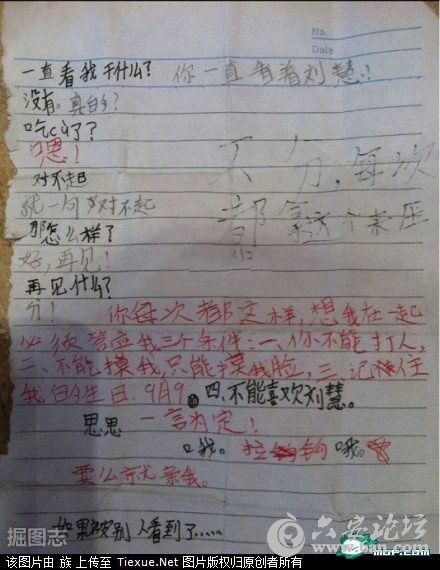 No.
Date
一直看我干什么? 你一直看着刘慧!
没有。真的?
吃c了?
嗯!
对不起
就一句对不起
不分,每次
都拿这个来压
那怎么样?
好,再见!
再见什么?
分! 你每次都这样,想我在一起
必须答应我三个条件:一.你不能打人,
二.不能摸我,只能摸我脸,三.记住
我的生日.9月9. 四.不能喜欢刘慧。
思思 一言为定!
口我。拉钩 哦。
要么就亲我。
如果被别人看到了......
掘图志
六安论坛
mop.com
该图片由 族 上传至 Tiexue.Net 图片版权归原创者所有